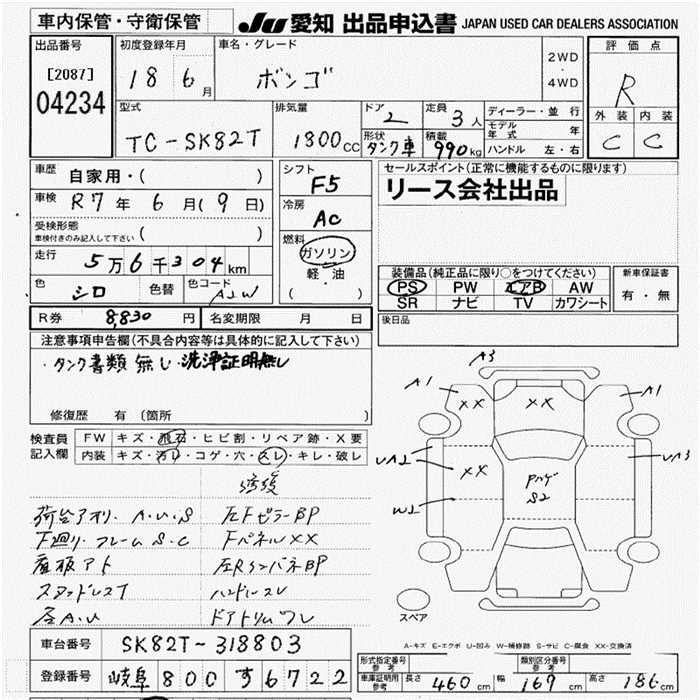 車内保管・守衛保管 JU 愛知 出品申込書 JAPAN USED CAR DEALERS ASSOCIATION
出品番号 初度登録年月 車名・グレード 評価点
[2087] 04234 18 6月 ボンゴ 2WD・4WD R
型式 排気量 ドア 定員 ディーラー・並行 外装 内装
TC-SK82T 1800CC 2 3人 モデル年式 年 C C
形状 タンク車 積載 990kg ハンドル 左・右
車歴 自家用・( )
車検 R7年6月(9日)
受検形態 ( )
車検付きのみ記入して下さい
走行 5万6千304km
色 シロ 色替 色コード A2W
シフト F5
冷房 AC
燃料 ガソリン
軽・油
( )
セールスポイント(正常に機能するものに限ります)
リース会社出品
装備品(純正品に限り○をつけてください) 新車保証書
PS PW エアB AW 有・無
SR ナビ TV カワシート
後日品
R券 8,830円 名変期限 月 日
注意事項申告欄(不具合内容等は具体的に記入して下さい)
・タンク書類無し・洗浄証明無し
修復歴 有 (箇所 )
検査員記入欄 FW キズ・飛石・ヒビ割・リペア跡・X要
内装 キズ・汚レ・コゲ・穴・スレ・キレ・破レ
修復
荷台アオリ・A.U.S 左FピラーBP
下廻り・フレームS.C FパネルXX
座板アト 左RインパネBP
スタッドレスT ハンドルスレ
屋A.U ドアトリムワレ
A3
A1 XX XX A1
UA2 XX UA3
W2 S2
スペア
A-キズ E-エクボ U-凹み W-補修跡 S-サビ C-腐食 XX-交換済
車台番号 SK82T-318803
登録番号 岐阜 800 す 6722
形式指定番号 参考 類別区分番号 参考
車庫証明用 参考 長さ 460cm 幅 169cm 高さ 186cm